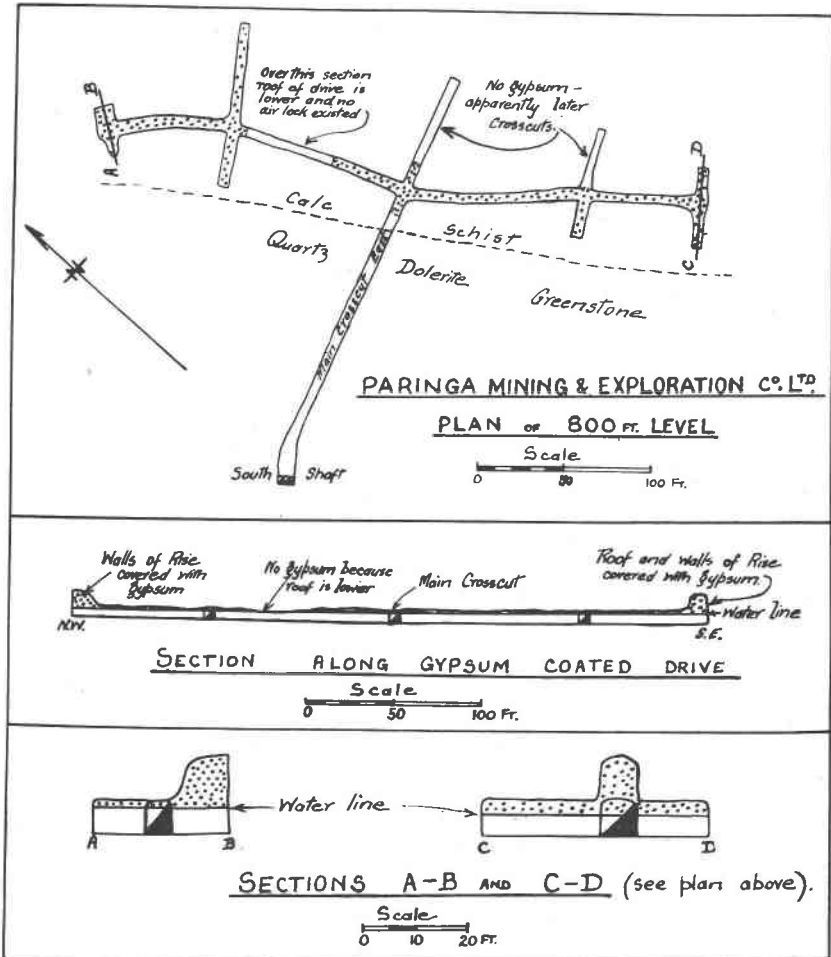 B
A
Over this section
roof of drive is
lower and no
air lock existed
No gypsum -
apparently later
Crosscuts.
D
C
Calc Schist
Quartz Dolerite Greenstone
Main Crosscut East
South Shaft
PARINGA MINING & EXPLORATION Co. LTD.
PLAN OF 800 FT. LEVEL
Scale
0 50 100 FT.
Walls of Rise
covered with
gypsum
No gypsum because
roof is lower
Main Crosscut
Roof and walls of Rise
covered with gypsum.
Water line
N.W.
S.E.
SECTION ALONG GYPSUM COATED DRIVE
Scale
0 50 100 FT.
Water line
A B C D
SECTIONS A-B AND C-D (see plan above).
Scale
0 10 20 FT.